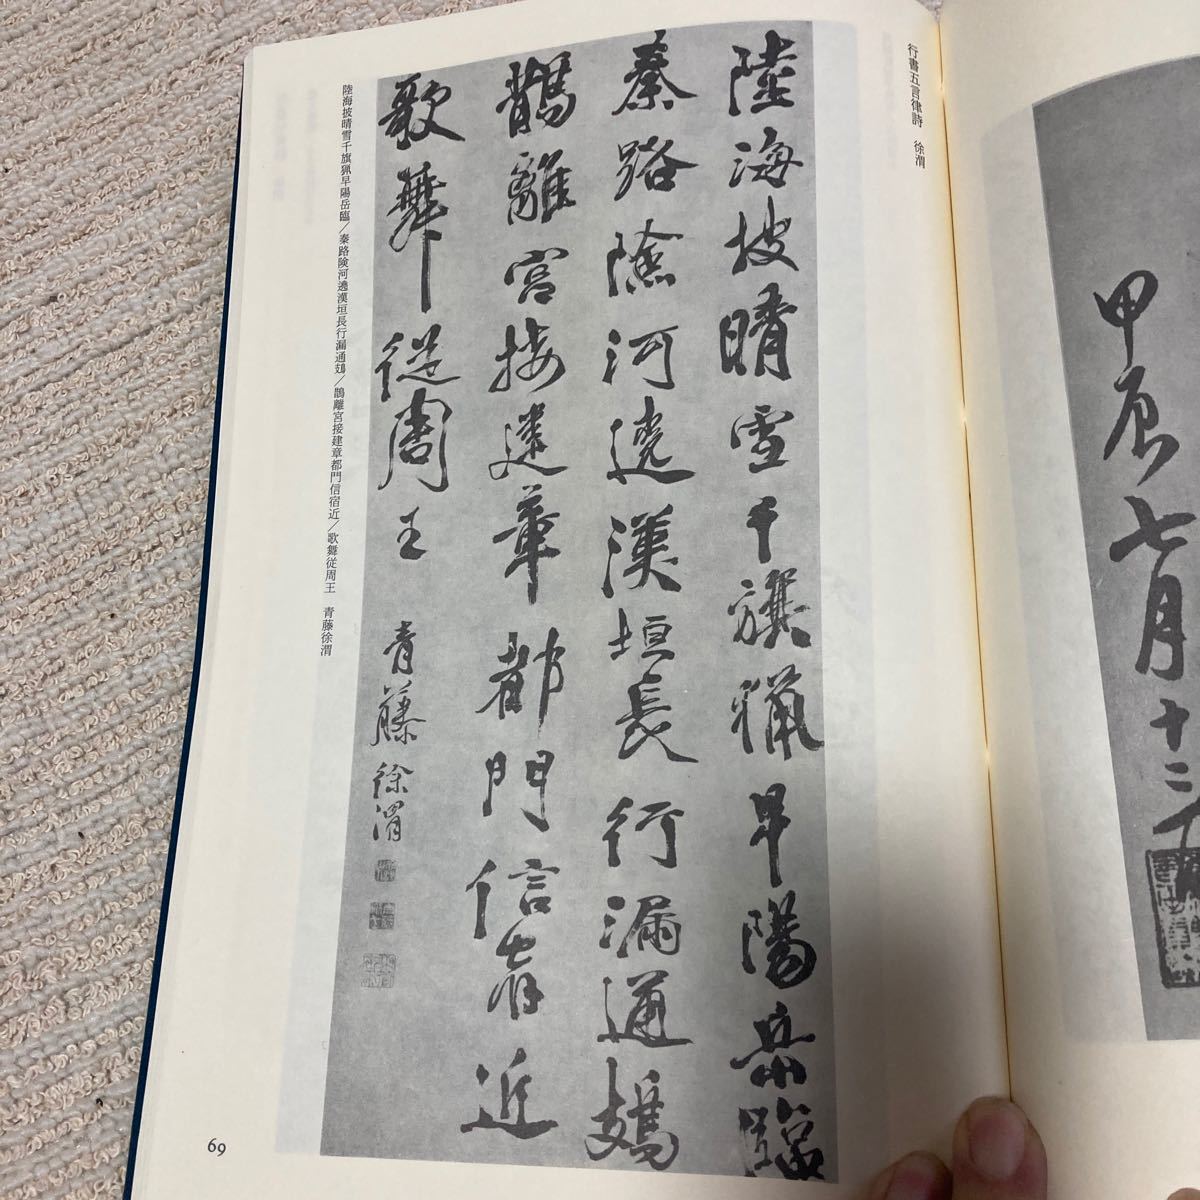 甲辰七月十二
行書五言律詩　徐渭
陸海披晴雪千旗猟早陽岳臨
秦路険河遶漢垣長行漏通鳷
鵲離宮接建章都門信宿近
歌舞従周王
青藤徐渭
陸海披晴雪千旗猟早陽岳臨／秦路険河遶漢垣長行漏通鳷／鵲離宮接建章都門信宿近／歌舞従周王　青藤徐渭
69